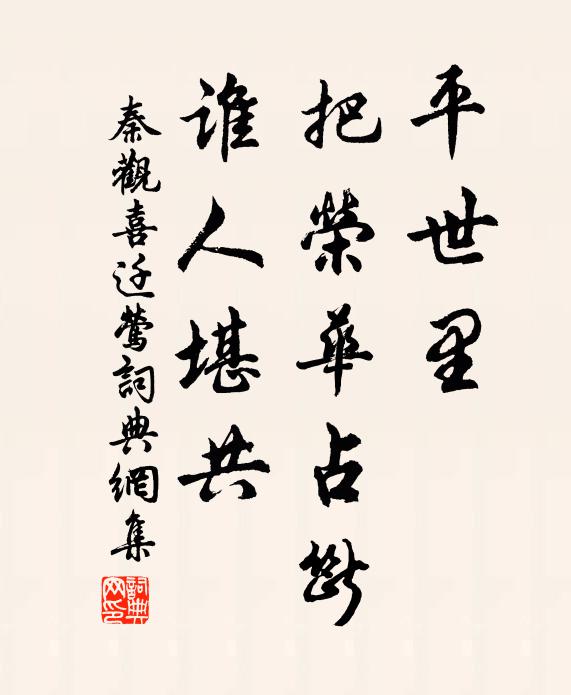 平世里
把榮華占斷
誰人堪共
秦觀喜迁鶯詞典網集
詞典
网印